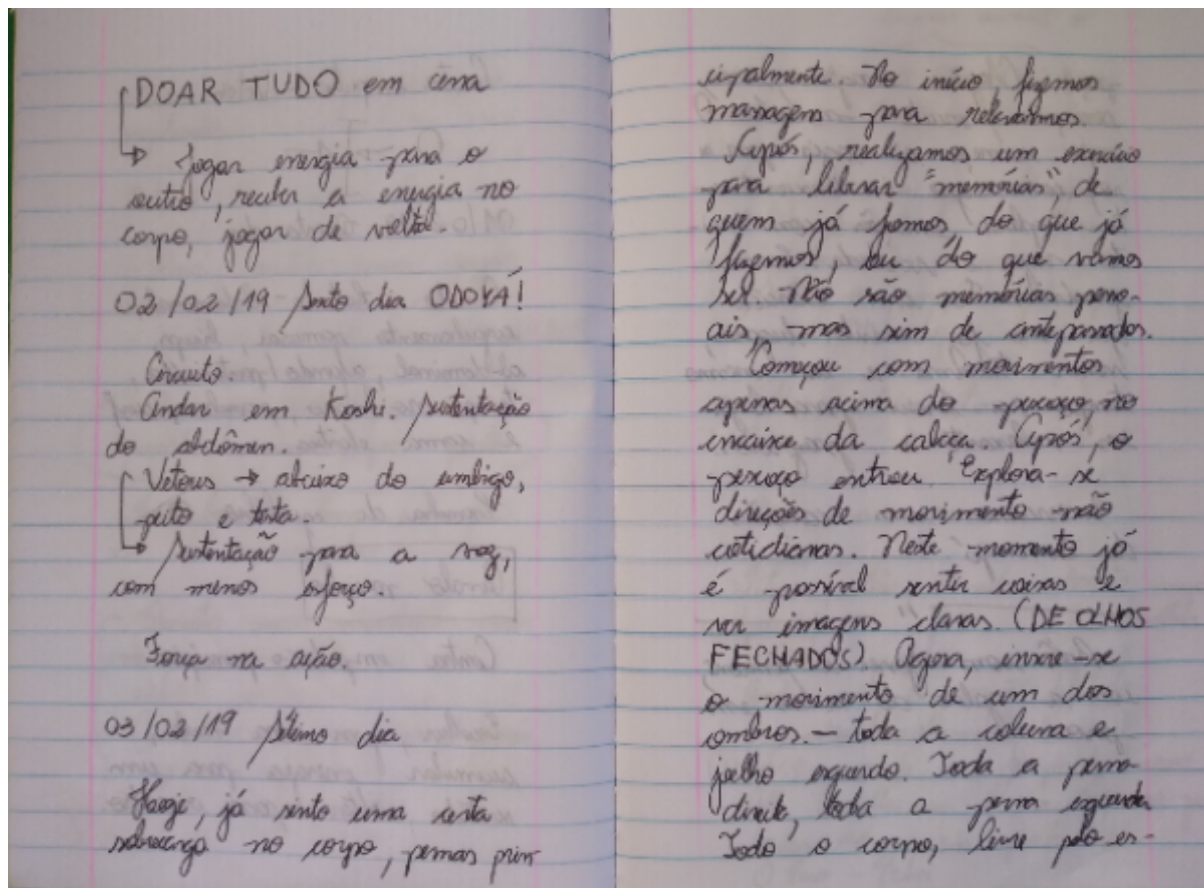 DOAR TUDO em cena
Jogar energia para o
outro, receber a energia no
corpo, jogar de volta.
02/02/19 Sexto dia ODOYÁ!
Circuito.
Andar em Koshi. Sustentação
do abdômen.
Vetores → abaixo do umbigo,
peito e testa.
Sustentação para a voz,
com menos esforço.
Força na ação.
03/02/19 Sétimo dia
Hoje, já sinto uma certa
sobrecarga no corpo, pernas prin-
cipalmente. No início, fizemos
massagens para relaxarmos.
Após, realizamos um exercício
para liberar "memórias" de
quem já fomos, do que já
fizemos, ou do que vamos
ser. Não são memórias pesso-
ais, mas sim de antepassados.
Começou com movimentos
apenas acima do pescoço, no
encaixe da cabeça. Após, o
pescoço entrou. Explora-se
direções de movimento não
cotidianas. Neste momento já
é possível sentir coisas e
ver imagens claras. (DE OLHOS
FECHADOS) Agora, insere-se
o movimento de um dos
ombros. – toda a coluna e
joelho esquerdo. Toda a perna
direita, toda a perna esquerda
Todo o corpo, livre pelo es-